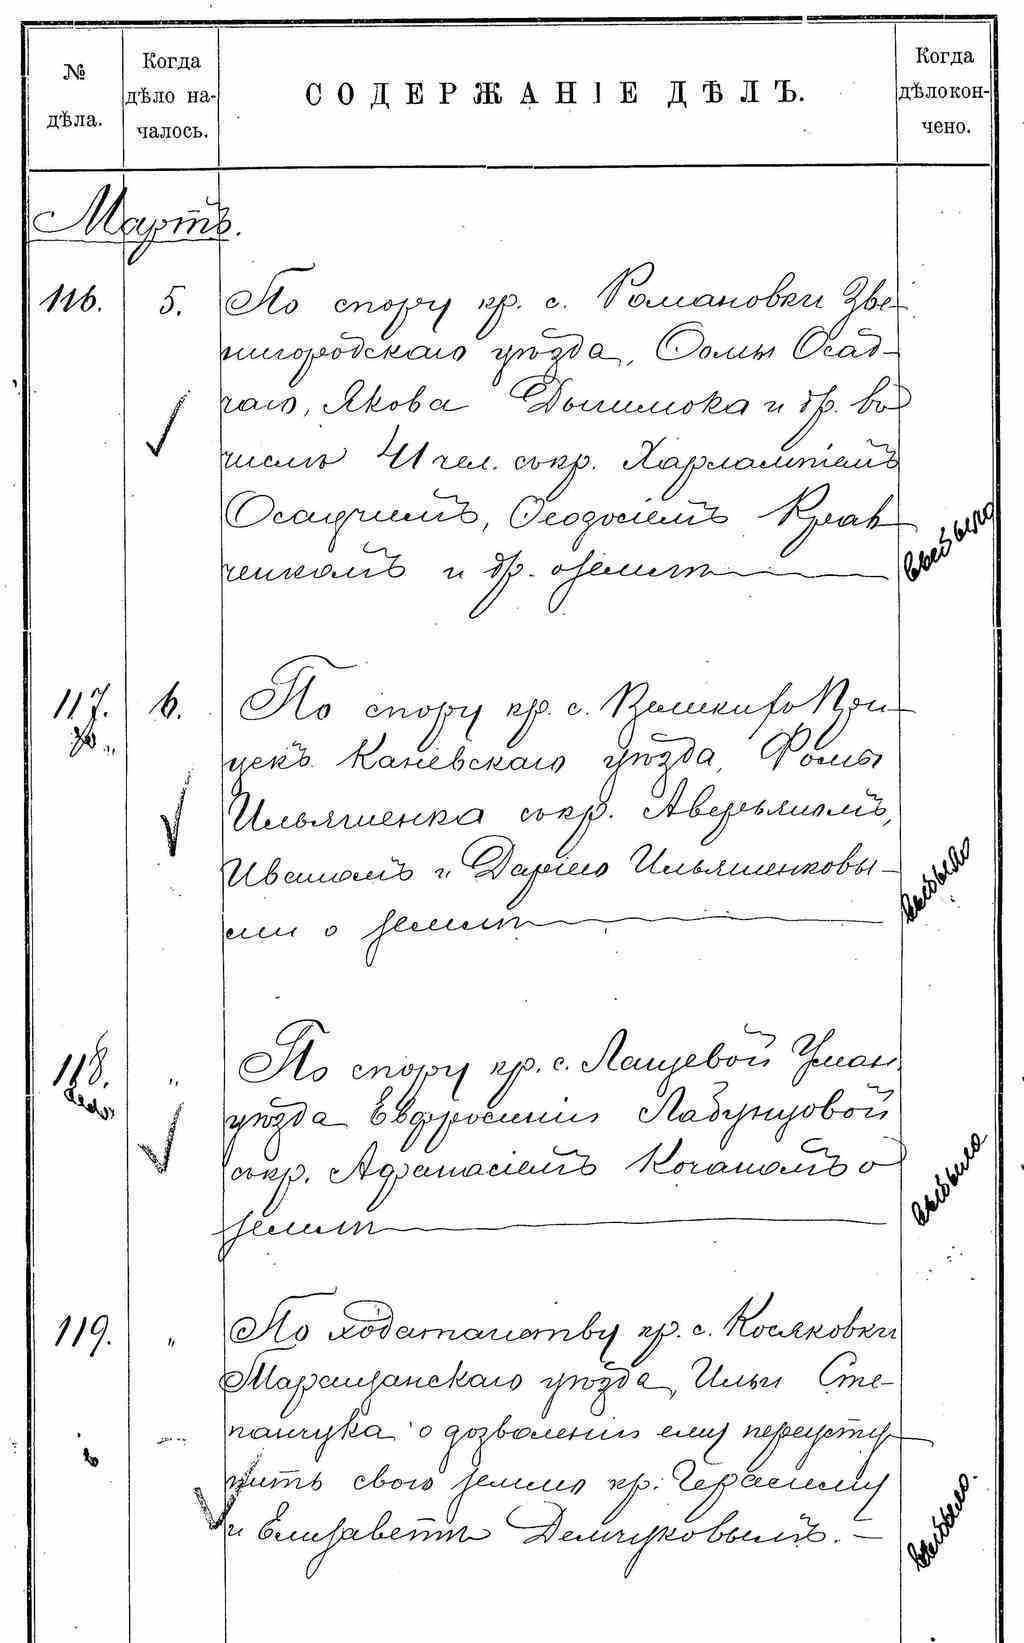 № дѣла.
Когда дѣло на-
чалось.
СОДЕРЖАНІЕ ДѢЛЪ.
Когда дѣло кон-
чено.
Мартъ.
116. 5. По спору кр. с. Романовки Зве-
нигородскаго уѣзда, Ѳомы Осад-
чаго, Якова Дышлюка и др. въ
числѣ 41 чел. съ кр. Харлампіемъ
Осадчимъ, Ѳеодосіемъ Крав
ченкомъ и др. о землѣ
выбыло
117. 6. По спору кр. с. При-
цекъ Каневскаго уѣзда, Фомы
Ильяшенка съ кр. Аверьяномъ,
Иваномъ и Даріею Ильяшенковы-
ми о землѣ
выбыло
118. " По спору кр. с. Лащевой Уман.
уѣзда Евфросиніи Лабунцовой
съ кр. Афанасіемъ Кочаномъ о
землѣ
выбыло
119. " По ходатайству кр. с. Косяковки
Таращанскаго уѣзда, Ильи Сте-
панчука о дозволеніи ему переусту-
пить свою землю кр. Герасиму
и Елизаветѣ Демчуковымъ. —
выбыло.